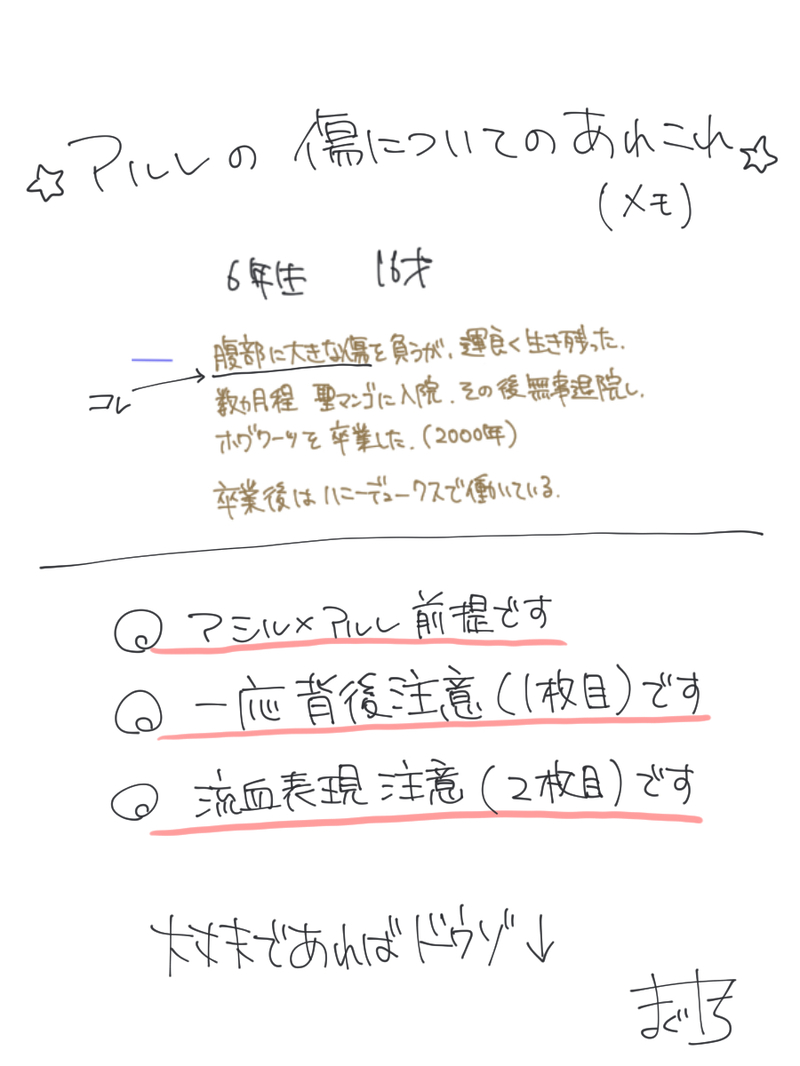 ☆アルレの傷についてのあれこれ☆
(メモ)
6年生 16才
腹部に大きな傷を負うが、運良く生き残った.
コレ
数ヵ月程 聖マンゴに入院. その後無事退院し、
ホグワーツを卒業した. (2000年)
卒業後はハニーデュークスで働いている.
アシル×アルレ前提です
一応背後注意(1枚目)です
流血表現注意(2枚目)です
大丈夫であればドウゾ↓